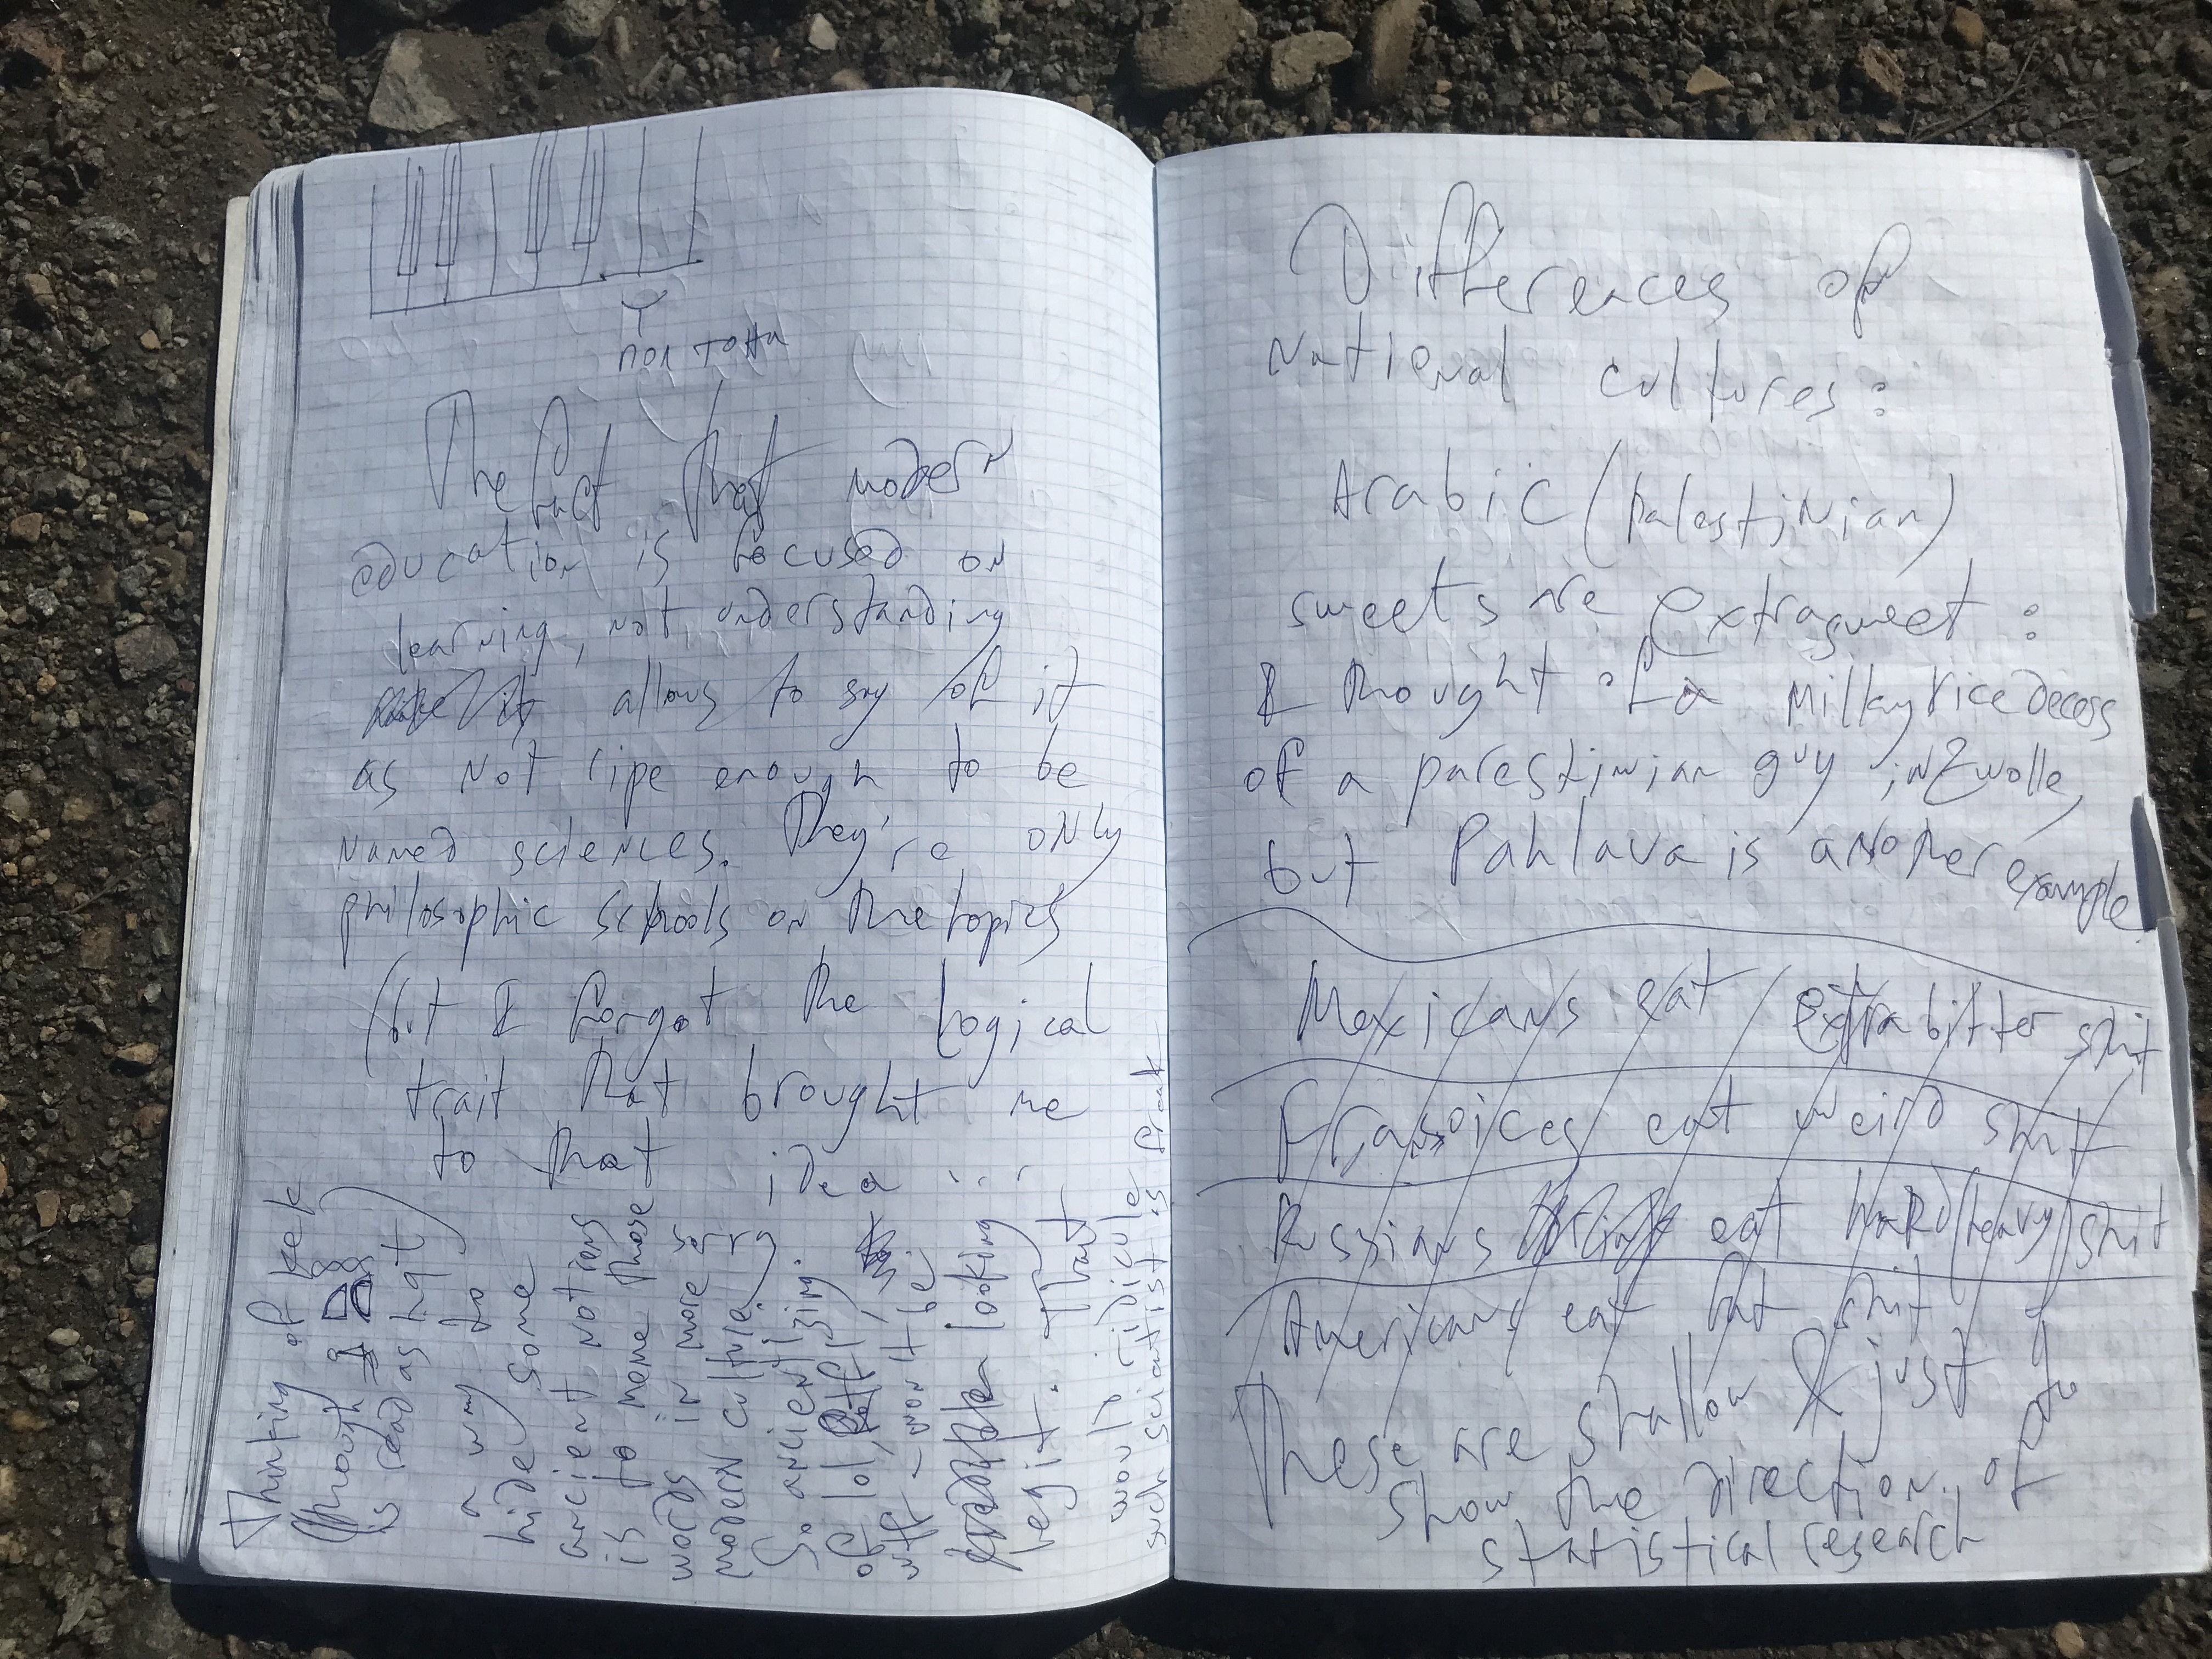 пол тона
The fact that modern
education is focused on
learning, not understanding
allows to say of it
as not ripe enough to be
named sciences. They're only
philosophic schools on the topics
(but I forgot the logical
trait that brought me
to that idea
Thinking of kek
(though it
is read as hqt)
a way to
hide some
ancient notions
is to name those
words in more
modern culture.
So ancient
of lol,
wtf – won't be
looking
legit. That
would ridicule
such scientist as freak
Differences of
national cultures:
Arabic (Palestinian)
sweets are extrasweet:
I thought of a milkyricedecess
of a parestinian guy in Zwolle,
but Pahlava is another example
Mexicans eat extrabitter shit
eat weird shit
Russians eat hard/heavy/shit
Americans eat fat shit
These are shallow & just q to
show the direction of
statistical research